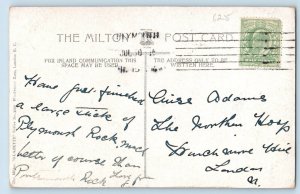 THE MILTON POST CARD.
FOR INLAND COMMUNICATION THIS
SPACE MAY BE USED.
THE ADDRESS ONLY TO BE
WRITTEN HERE.
Have just finished
a large stick of
Plymouth Rock much
better of course than
Portsmouth Rock
Adams
The Northern Hosp
Winchmore Hill
London
N.